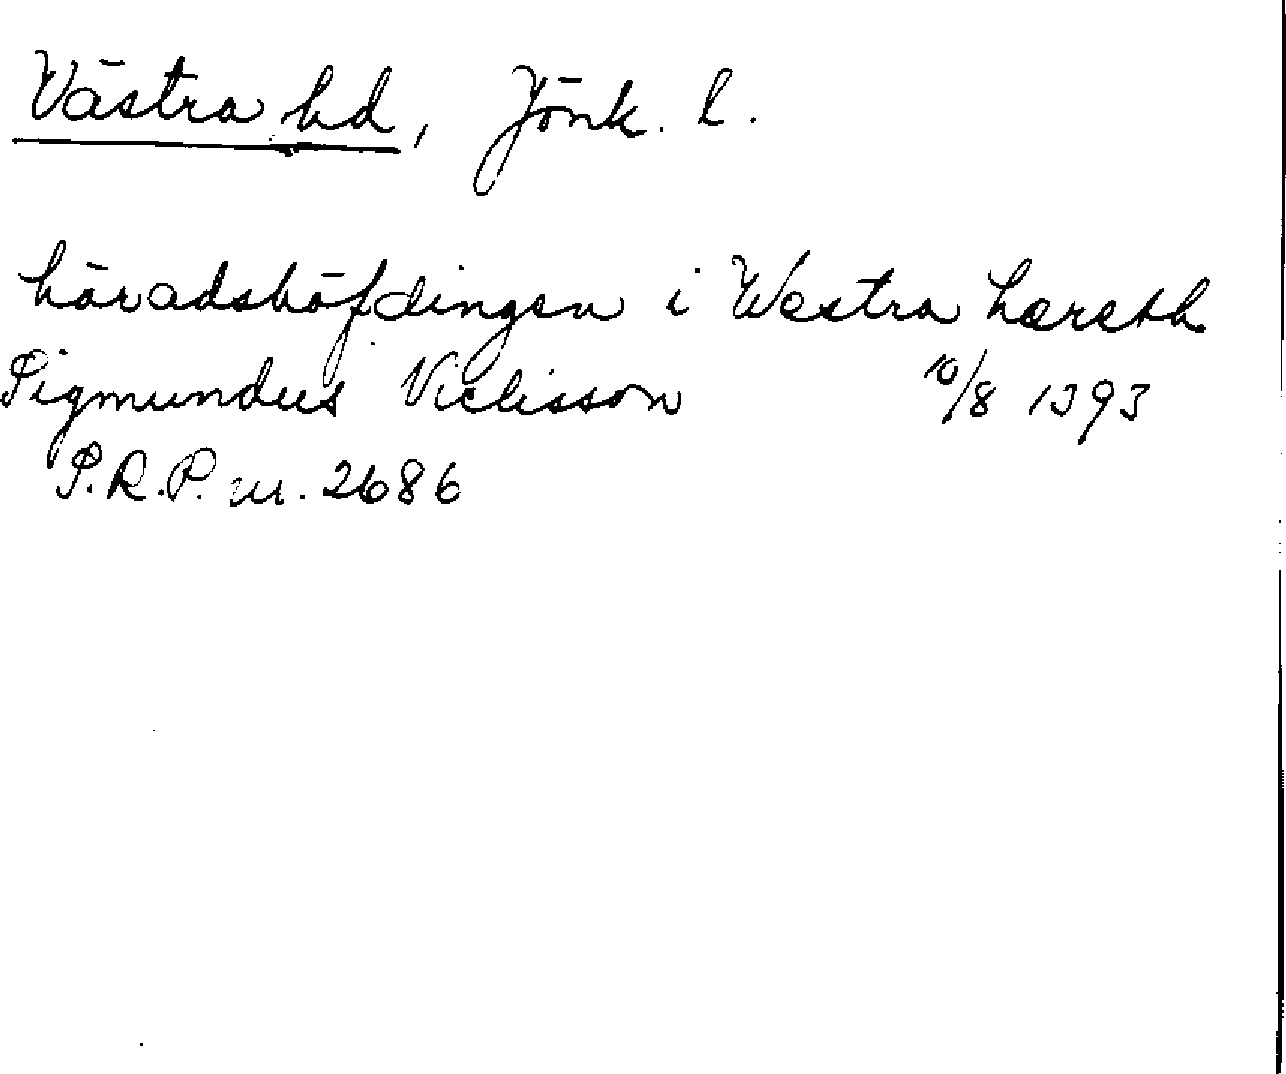 Västra hd, Jönk. l.
häradshöfdingen i Westra hæreth
Sigmundus Viclisson 10/8 1393
S.R.P. nr. 2686